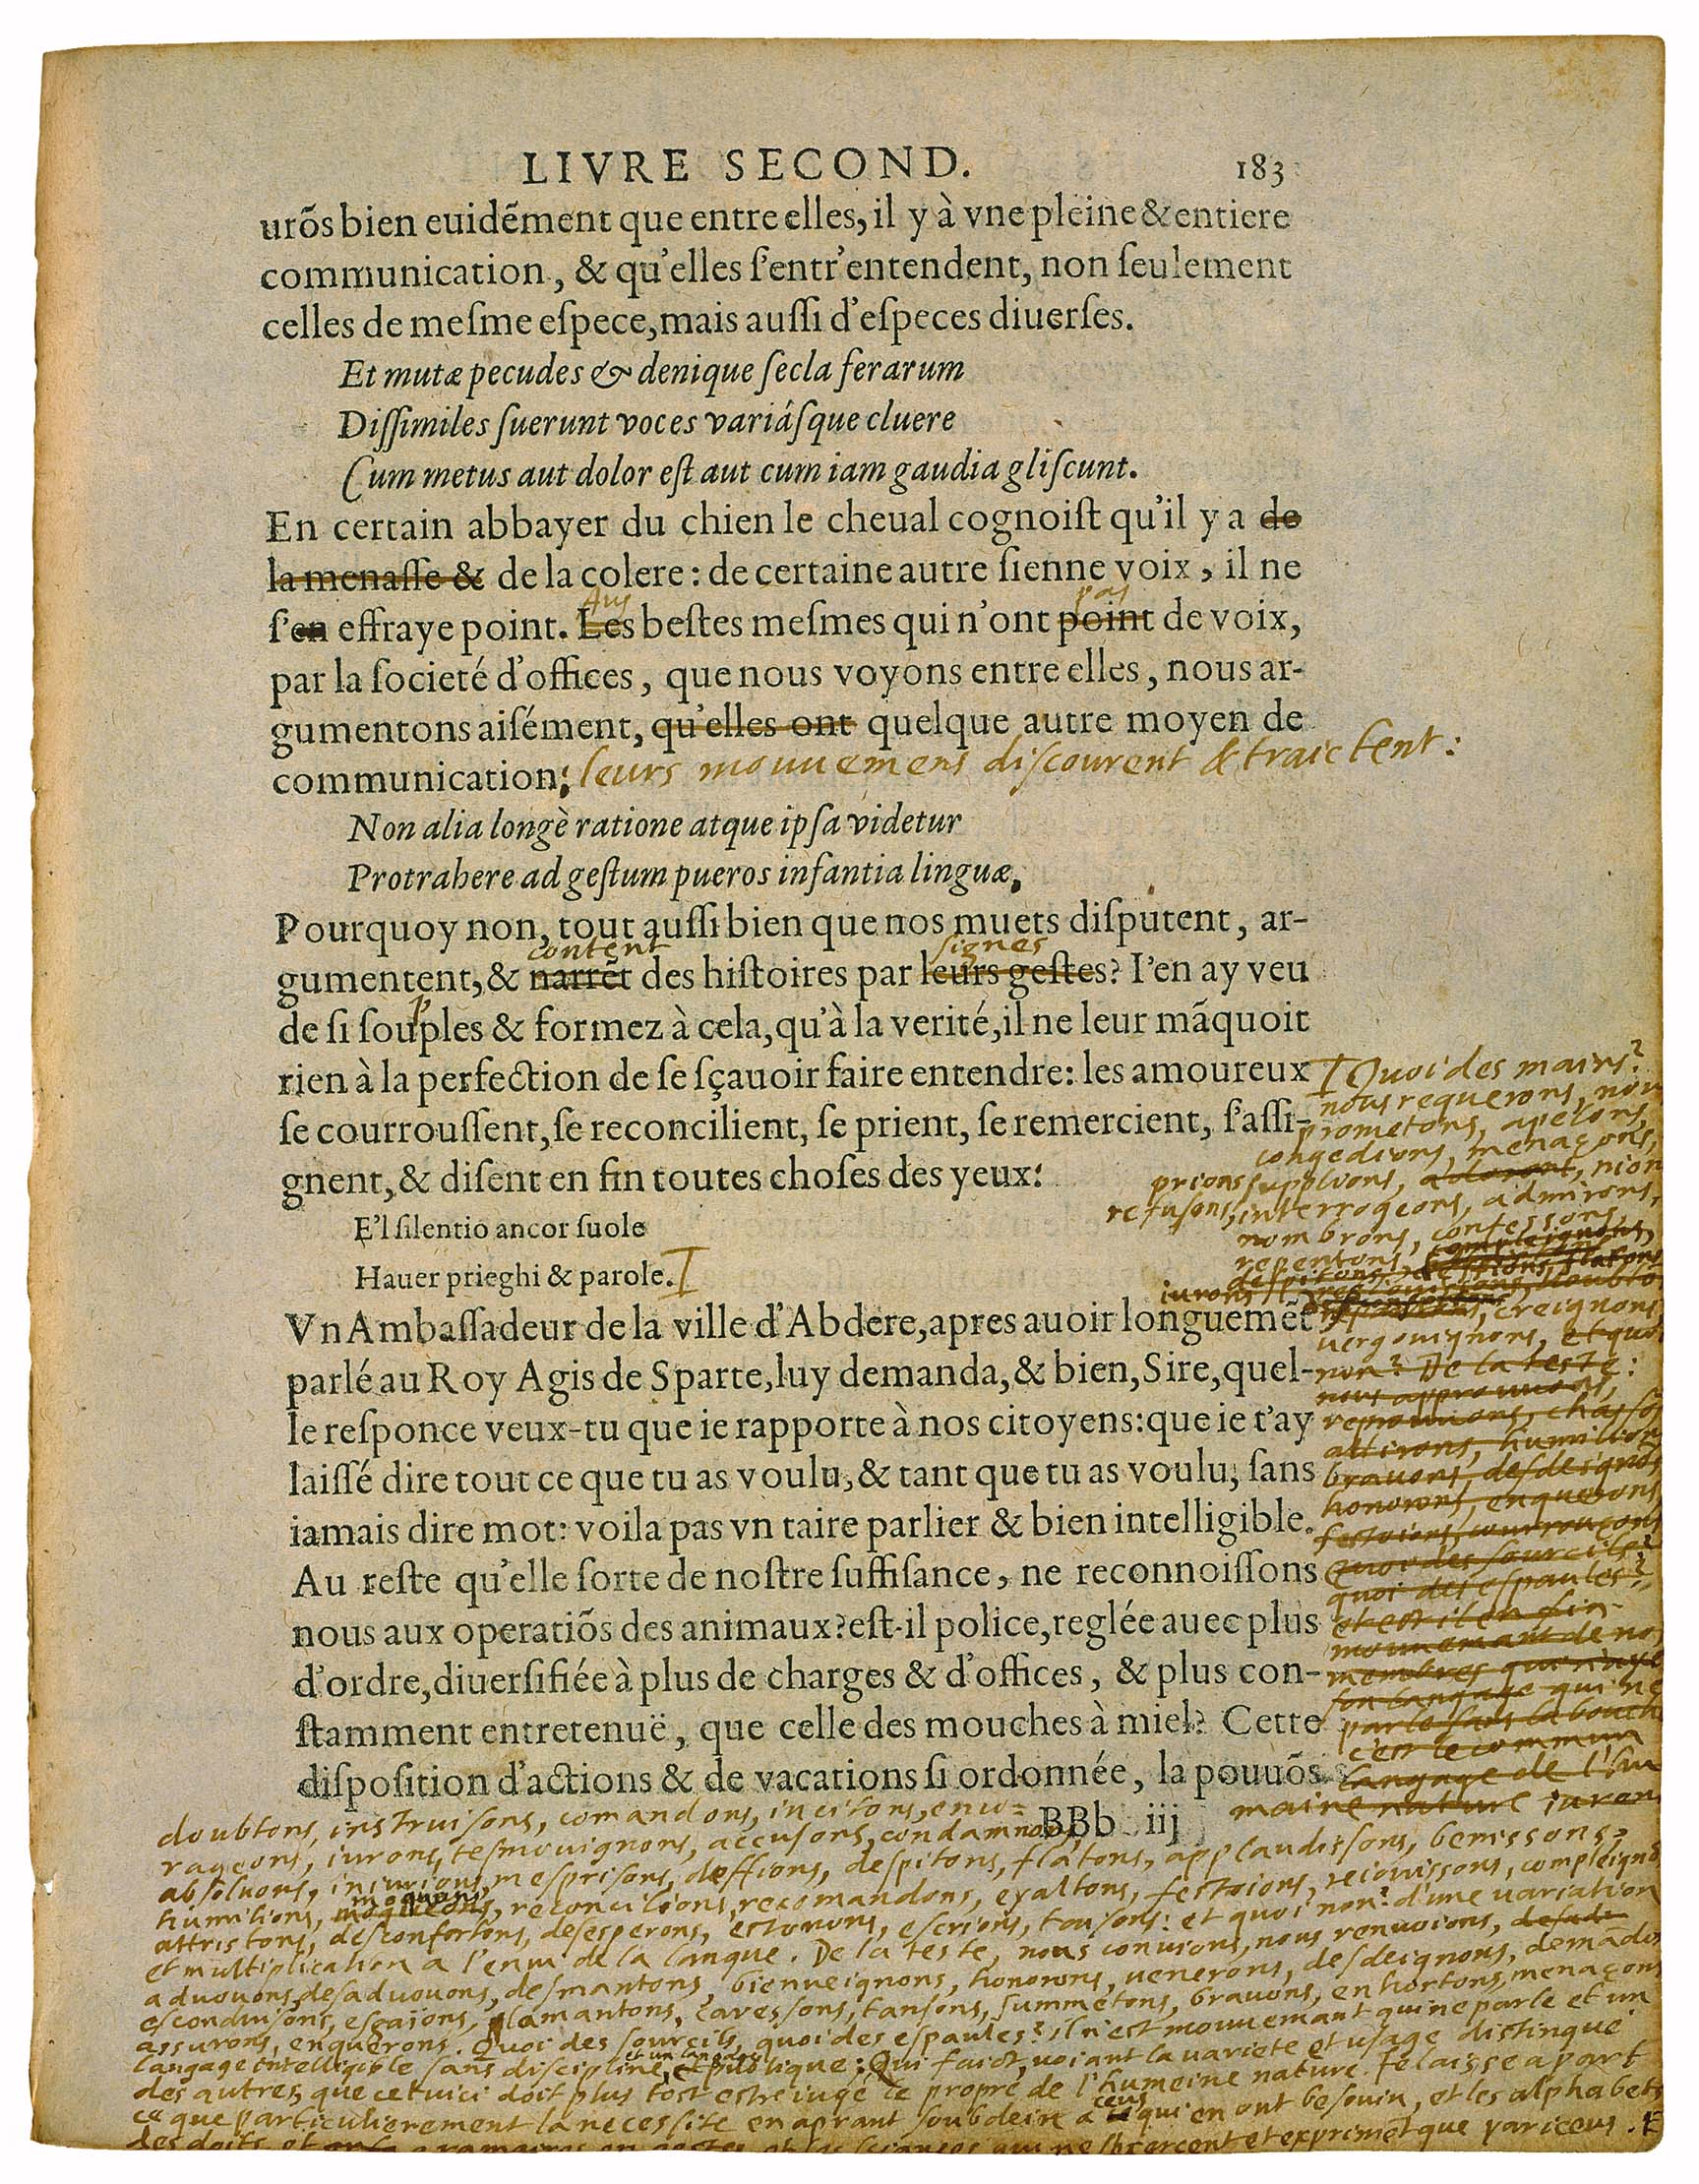 LIVRE SECOND. 183
urõs bien euidẽment que entre elles, il y à vne pleine & entiere
communication, & qu'elles ſ'entr'entendent, non ſeulement
celles de meſme eſpece, mais auſſi d'eſpeces diuerſes.
Et mutæ pecudes & denique ſecla ferarum
Diſſimiles ſuerunt voces variáſque cluere
Cum metus aut dolor eſt aut cum iam gaudia gliſcunt.
En certain abbayer du chien le cheual cognoiſt qu'il y a de
la menaſſe & de la colere: de certaine autre ſienne voix, il ne
Aus pas
ſ'en effraye point. Les beſtes meſmes qui n'ont point de voix,
par la ſocieté d'offices, que nous voyons entre elles, nous ar-
gumentons aiſément, qu'elles ont quelque autre moyen de
communication: leurs mouuemens diſcourent & traictent:
Non alia longè ratione atque ipſa videtur
Protrahere ad geſtum pueros infantia linguæ,
Pourquoy non, tout auſſi bien que nos muets diſputent, ar-
content signes
gumentent, & narrẽt des hiſtoires par leurs geſtes? I'en ay veu
de ſi ſouples & formez à cela, qu'à la verité, il ne leur mãquoit
rien à la perfection de ſe ſçauoir faire entendre: les amoureux
ſe courrouſſent, ſe reconcilient, ſe prient, ſe remercient, ſ'aſſi-
gnent, & diſent en fin toutes choſes des yeux:
E'l ſilentio ancor ſuole
Hauer prieghi & parole.
Quoi des mains?
nous requerons, nou
prometons, apelons,
congedions, menaçons,
prions supplions, nion
refusons, interrogeons, admirons,
nombrons, confessons,
repentons,
creignons
vergouignons, et quoi
non? De la teste:
nous
renuoions, chasso
attirons, humilion
brauons, desdeignos
honorons, enquerons
festoions, courrouçons
Quoi des sourcils?
quoi des espaules?
et est il en fin
mouuemant de nos
membres qui
son langage qui ne
parle sans la bouch
c'est le commun
langage de l'hu
maine nature iuron
Vn Ambaſſadeur de la ville d'Abdere, apres auoir longuemẽt
parlé au Roy Agis de Sparte, luy demanda, & bien, Sire, quel-
le reſponce veux-tu que ie rapporte à nos citoyens: que ie t'ay
laiſſé dire tout ce que tu as voulu, & tant que tu as voulu, ſans
iamais dire mot: voila pas vn taire parlier & bien intelligible.
Au reſte qu'elle ſorte de noſtre ſuffiſance, ne reconnoiſſons
nous aux operatiõs des animaux? eſt-il police, reglée auec plus
d'ordre, diuerſifiée à plus de charges & d'offices, & plus con-
ſtamment entretenuë, que celle des mouches à miel? Cette
diſpoſition d'actions & de vacations ſi ordonnée, la pouuõs
BBb iij
doubtons, instruisons, comandons, incitons, encu=
rageons, iurons, tesmouignons, accusons, condamnons,
absoluons, iniurions, mesprisons, deffions, despitons, flatons, applaudissons, benissons,
humilions, moquons, reconcilions, recomandons, exaltons, festoions, reiouissons, compleignõs
attristons, desconfortons, desesperons, estonons, escrions, taisons: et quoi non? d'une variation
et multiplication a l'enui de la langue. De la teste, nous conuions, nous renuoions,
aduouons, desaduouons, desmantons, bienueignons, honorons, uenerons, desdeignons, demãdõs
esconduisons, esgaïons, lamantons, caressons, tansons, summetons, brauons, enhortons, menaçons
assurons, enquerons. Quoi des sourcils, quoi des espaules? il n'est mouuemant qui ne parle et un
langage intelligible sans discipline, et un langage publique: Qui faict, uoiant la varieté et usage distingué
des autres, que cetuici doit plus tost estre iugé le propre de l'humeine nature. Ie laisse a part
ce que particulierement la necessité en aprant soubdein a ceus qui en ont besouin, et les alphabets
des doits, et gramaires en gestes, et les sciances qui ne s'exercent et expriment que par iceus. E